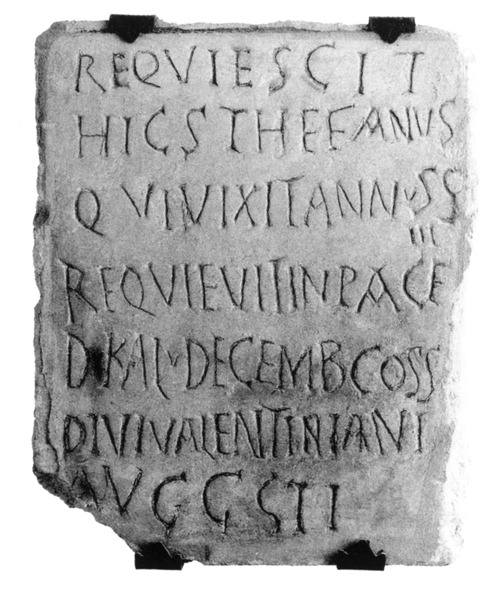 REQVIESCIT
HIC STHEFANVS
QVI VIXIT ANNVS S
III
REQVIEVIT IN PACE
D KAL DECEMB COSS
DIVI VALENTINIANI
AVGGSTI